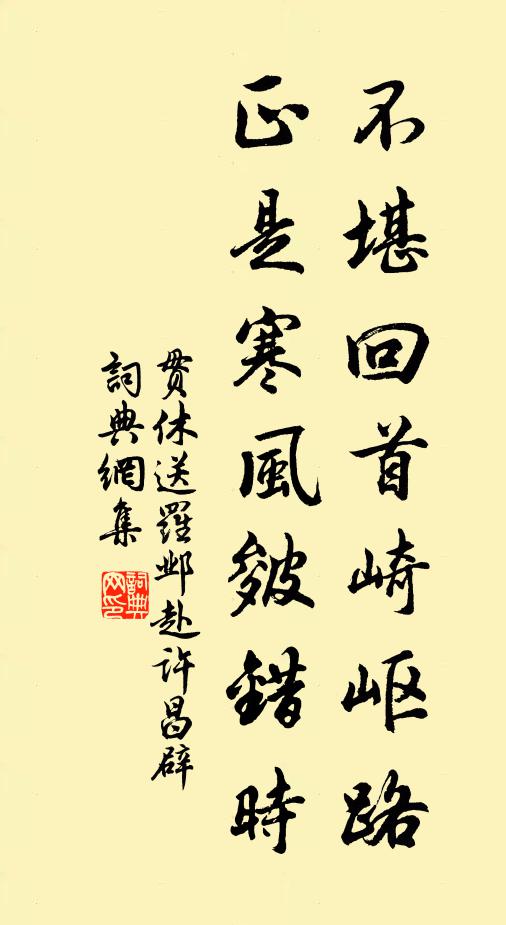 不堪回首崎岖路
正是寒風皴錯時
贯休送羅邺赴许昌辟
詞典網集
詞典網印